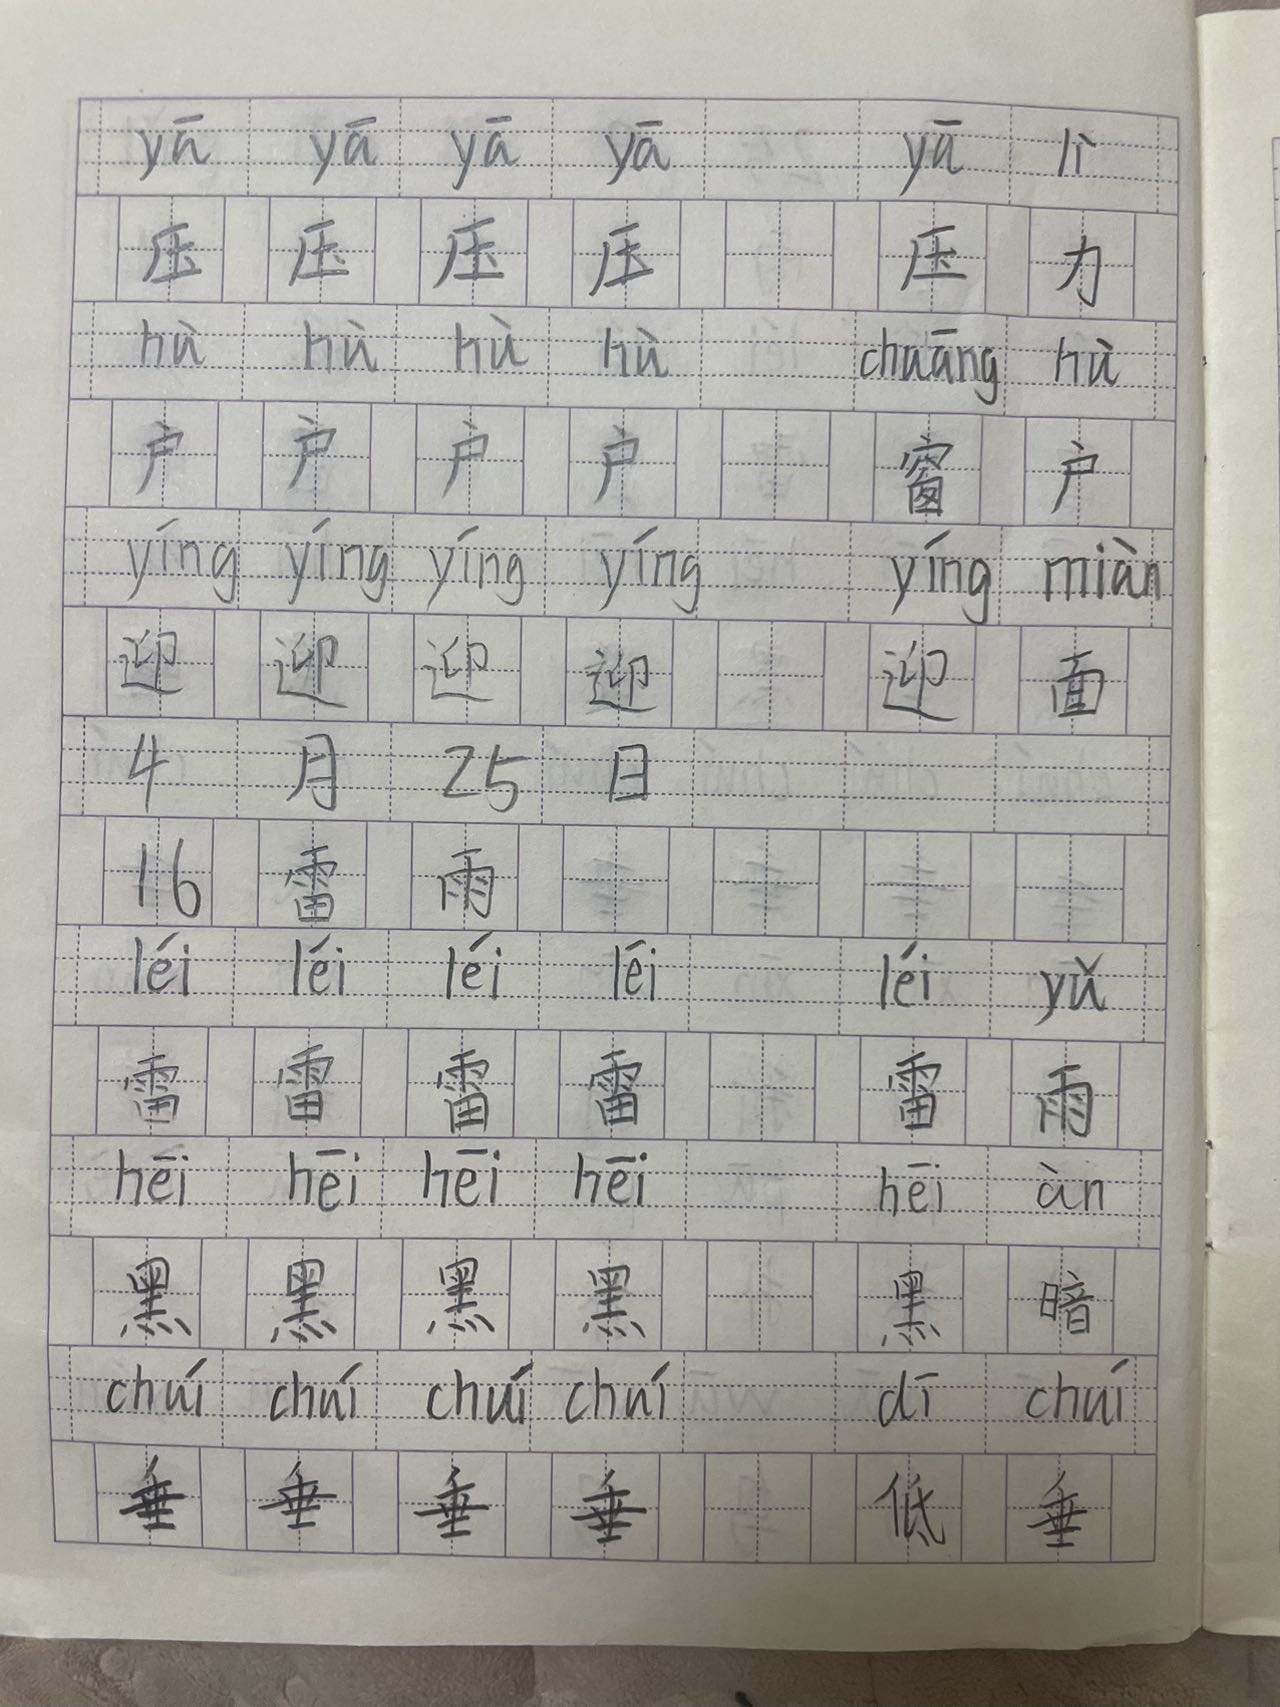 yā yā yā yā yā lì
压 压 压 压 压 力
hù hù hù hù chuāng hù
户 户 户 户 窗 户
yíng yíng yíng yíng yíng miàn
迎 迎 迎 迎 迎 面
4 月 25 日
16 雷 雨
léi léi léi léi léi yǔ
雷 雷 雷 雷 雷 雨
hēi hēi hēi hēi hēi àn
黑 黑 黑 黑 黑 暗
chuí chuí chuí chuí dī chuí
垂 垂 垂 垂 低 垂